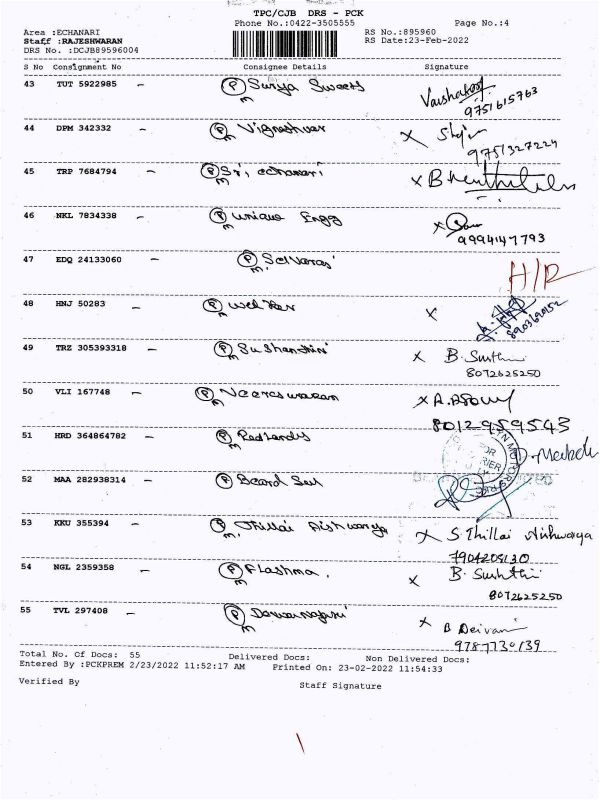 TPC/CJB DRS - PCK
Phone No.:0422-3505555 Page No.:4
Area :ECHANARI RS No.:895960
Staff :RAJESHWARAN RS Date:23-Feb-2022
DRS No. :DCJB89596004
S No Consignment No Consignee Details Signature
43 TUT 5922985 - P Surya Sweets
m 9751615763
44 DPM 342332 - P Vigneshwar X
m 9751327224
45 TRP 7684794 - P Sri, echanari X
m
46 NKL 7834338 - P unique Engg X
m 9994147793
47 EDQ 24133060 - P Selvaras
m H/R
48 HNJ 50283 - P X
m 8903690152
49 TRZ 305393318 - P X B.
m 8072625250
50 VLI 167748 - P Veereswaran X
m 8012959543
51 HRD 364864782 - P Redlands
m
52 MAA 282938314 - P
m
53 KKU 355394 - P Thillai Aishwarya X S. Thillai Aishwarya
m 7904208130
54 NGL 2359358 - P Flashma. X B.
m 8072625250
55 TVL 297408 - P X B Deivani
m 9787730139
Total No. Of Docs: 55 Delivered Docs: Non Delivered Docs:
Entered By :PCKPREM 2/23/2022 11:52:17 AM Printed On: 23-02-2022 11:54:33
Verified By Staff Signature